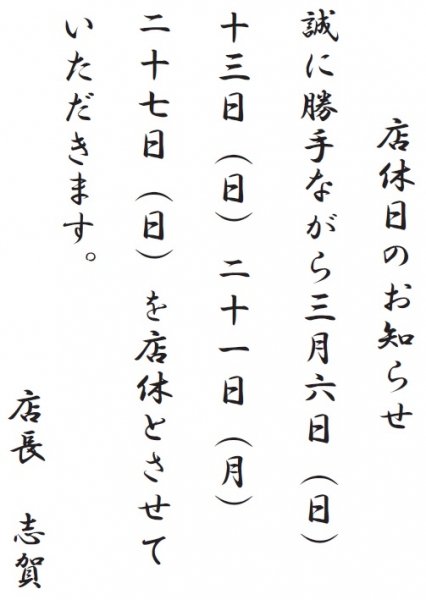 店休日のお知らせ
誠に勝手ながら三月六日（日）
十三日（日）二十一日（月）
二十七日（日）を店休とさせて
いただきます。
店長　志賀